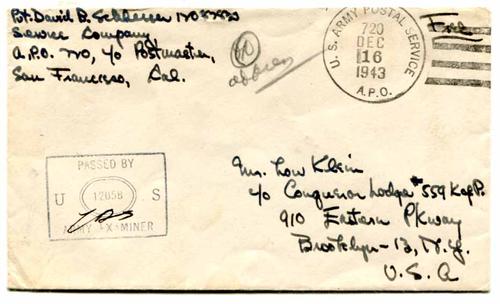 Pvt. David B.
Service Company
A.P.O. 720, c/o Postmaster,
San Francisco, Cal.
address
U. S. ARMY POSTAL SERVICE
720
DEC
16
1943
A.P.O.
Free
PASSED BY
U 12058 S
ARMY EXAMINER
Mr. Lou Klein
c/o Conqueror Lodge #559 K of P.
910 Eastern Pkway
Brooklyn-13, N.Y.
U.S.A